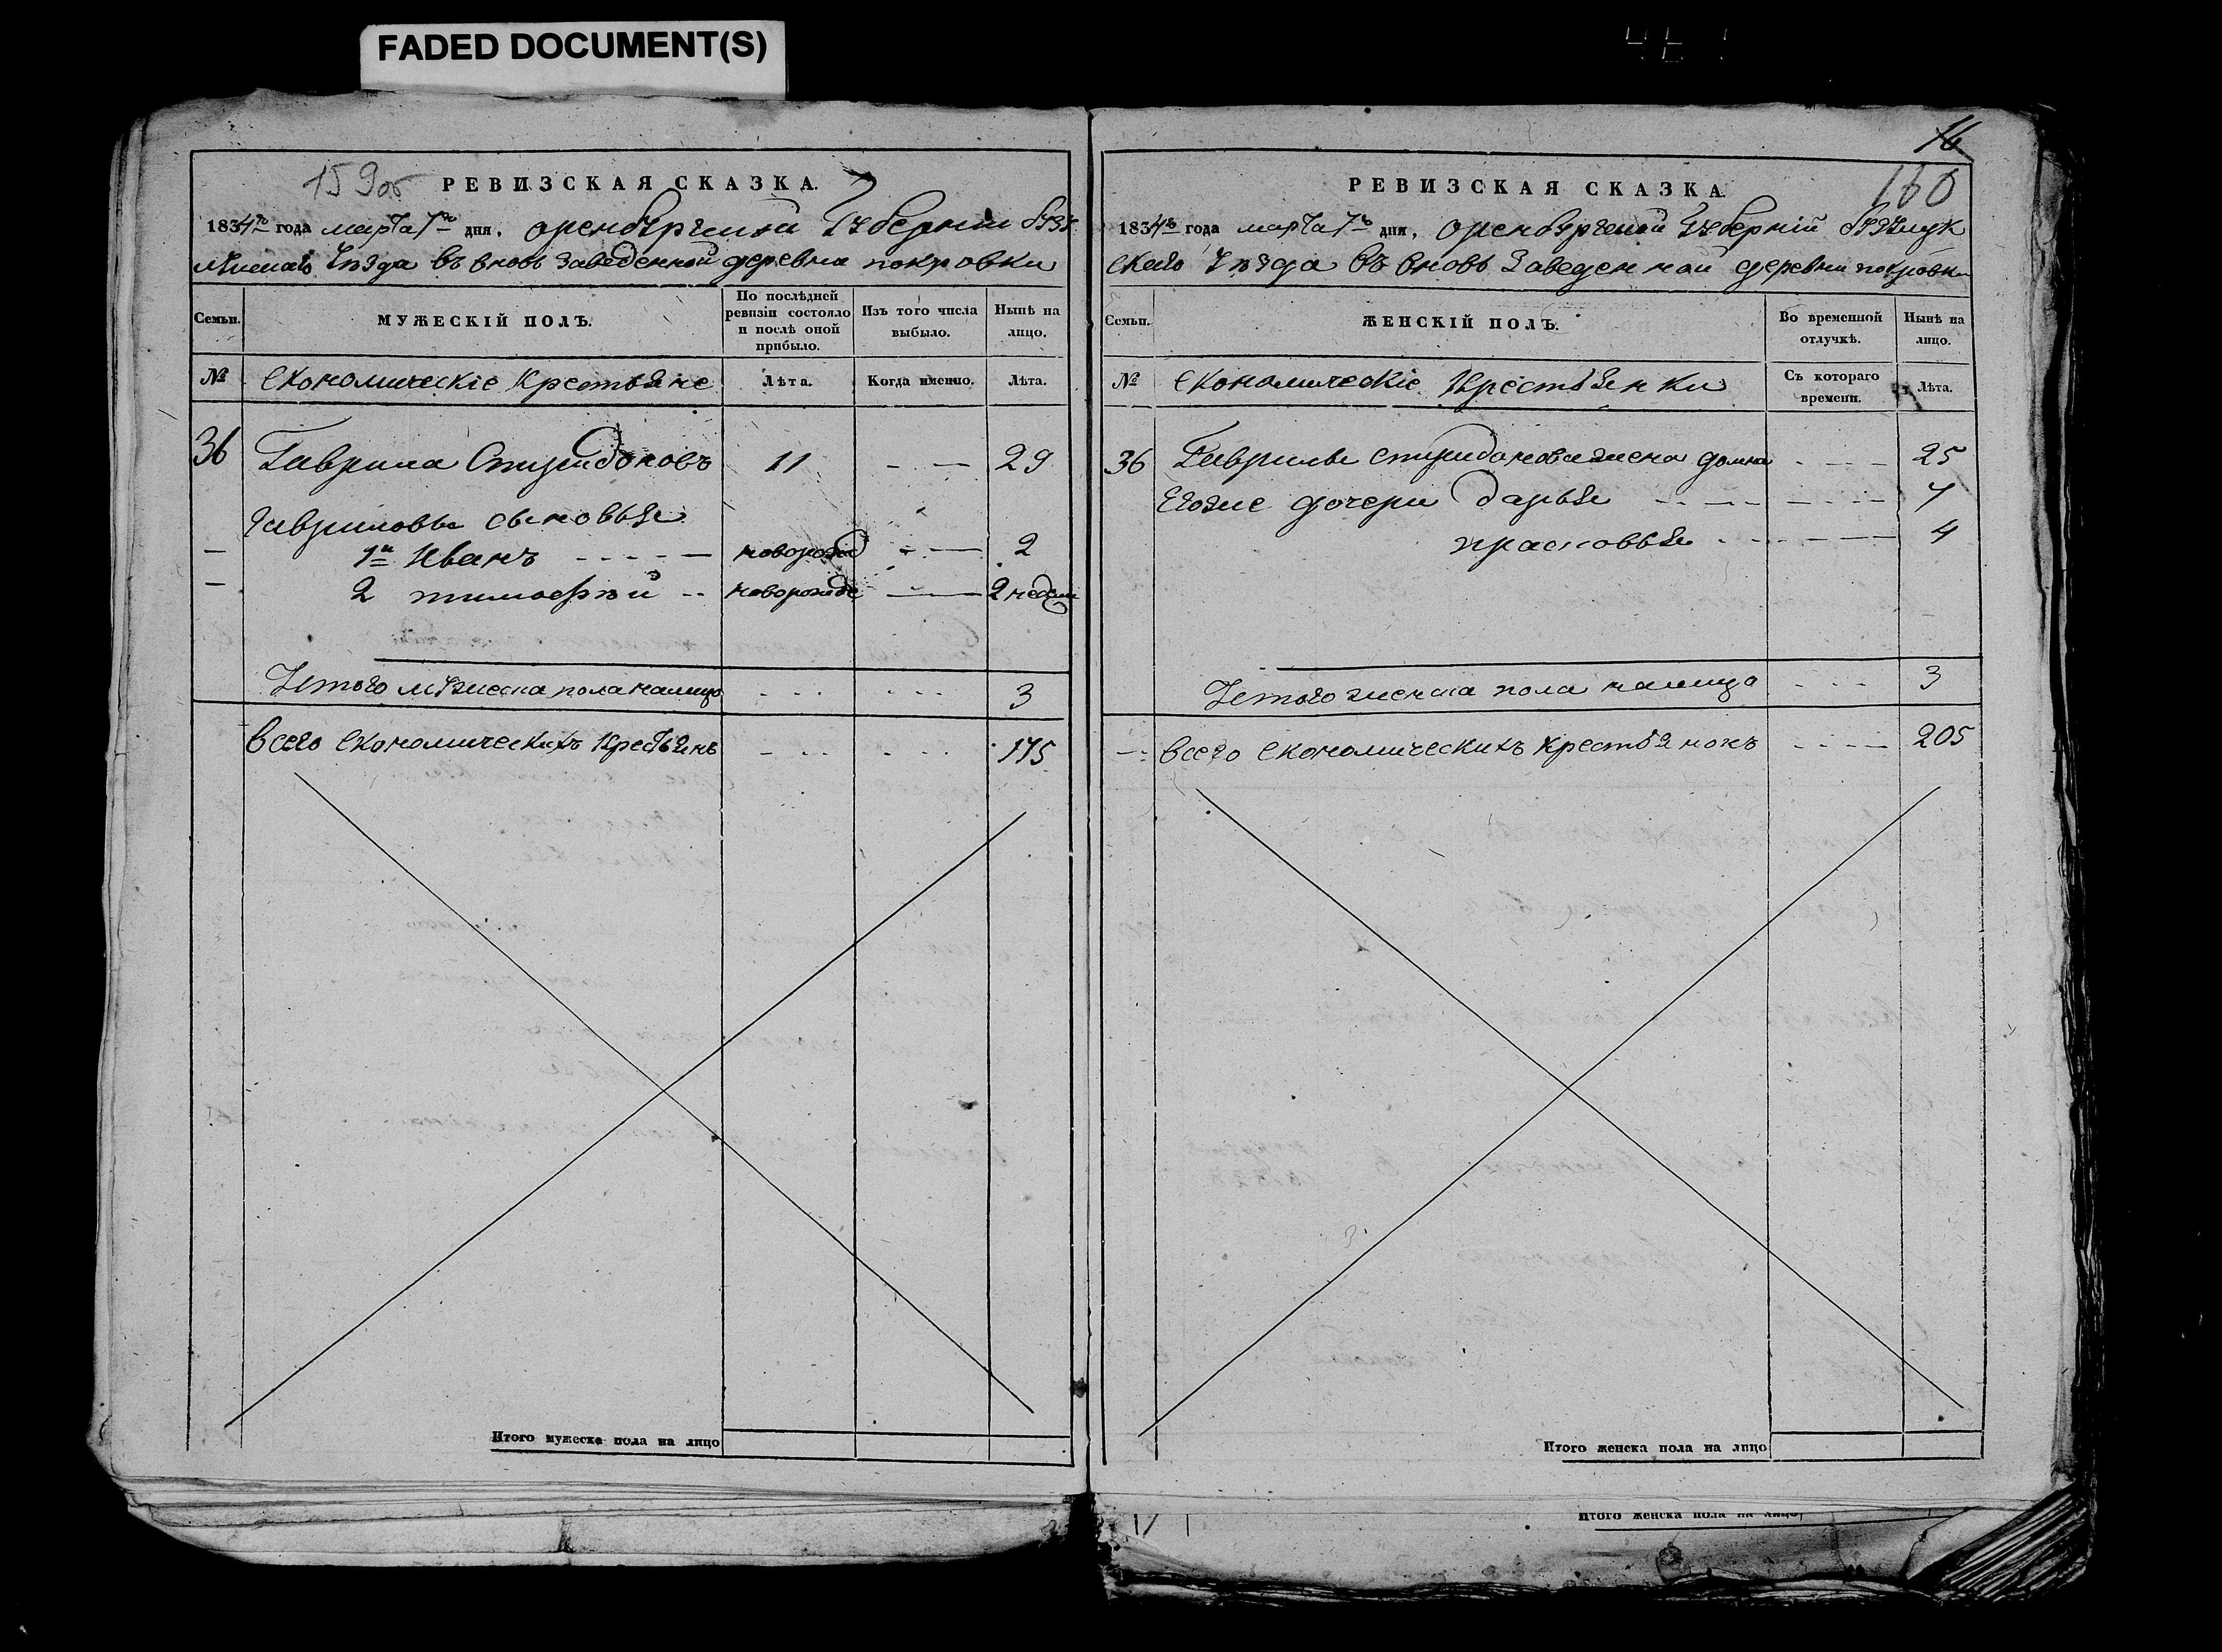 FADED DOCUMENT(S)
159об
РЕВИЗСКАЯ СКАЗКА.
1834го года марта 7го дня, оренбургской Губернии бузу
лукскаго Уѣзда въ вновь заведенной деревни покровки
Семьи.
МУЖЕСКІЙ ПОЛЪ.
По послѣдней
ревизіи состояло
и послѣ оной
прибыло.
Изъ того числа
выбыло.
Нынѣ на
лицо.
№
Економическіе Крестьяне
Лѣта.
Когда именно.
Лѣта.
36 Гаврила Спиридоновъ 11 29
Гавриловы сыновья
1й Иванъ новорожд 2
2 тимофѣй новорожде 2 недели
Итого мужеска пола налицо 3
Всего економическихъ Крестьянъ 175
Итого мужеска пола на лицо
16
160
РЕВИЗСКАЯ СКАЗКА.
1834го года марта 7го дня, оренбургской Губерній бузулук
скаго Уѣзда въ вновь Заведенной деревни покровки
Семьи.
ЖЕНСКІЙ ПОЛЪ.
Во временной
отлучкѣ.
Нынѣ на
лицо.
№
Економическіе Крестьянки
Съ котораго
времени.
Лѣта.
36 Гаврилы спиридонова жена домна 25
Егоже дочери дарья 7
прасковья 4
Итого женска пола налицо 3
Всего економическихъ крестьянокъ 205
Итого женска пола на лицо
Итого женска пола на лицо